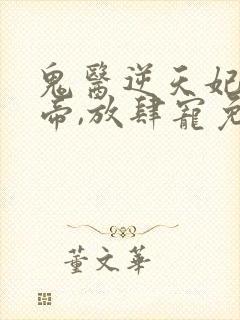 鬼醫逆天妃
帝,放肆寵
董文華